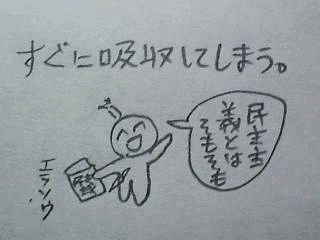 すぐに吸収してしまう。
民主主
義とは
そもそも
エラソウ